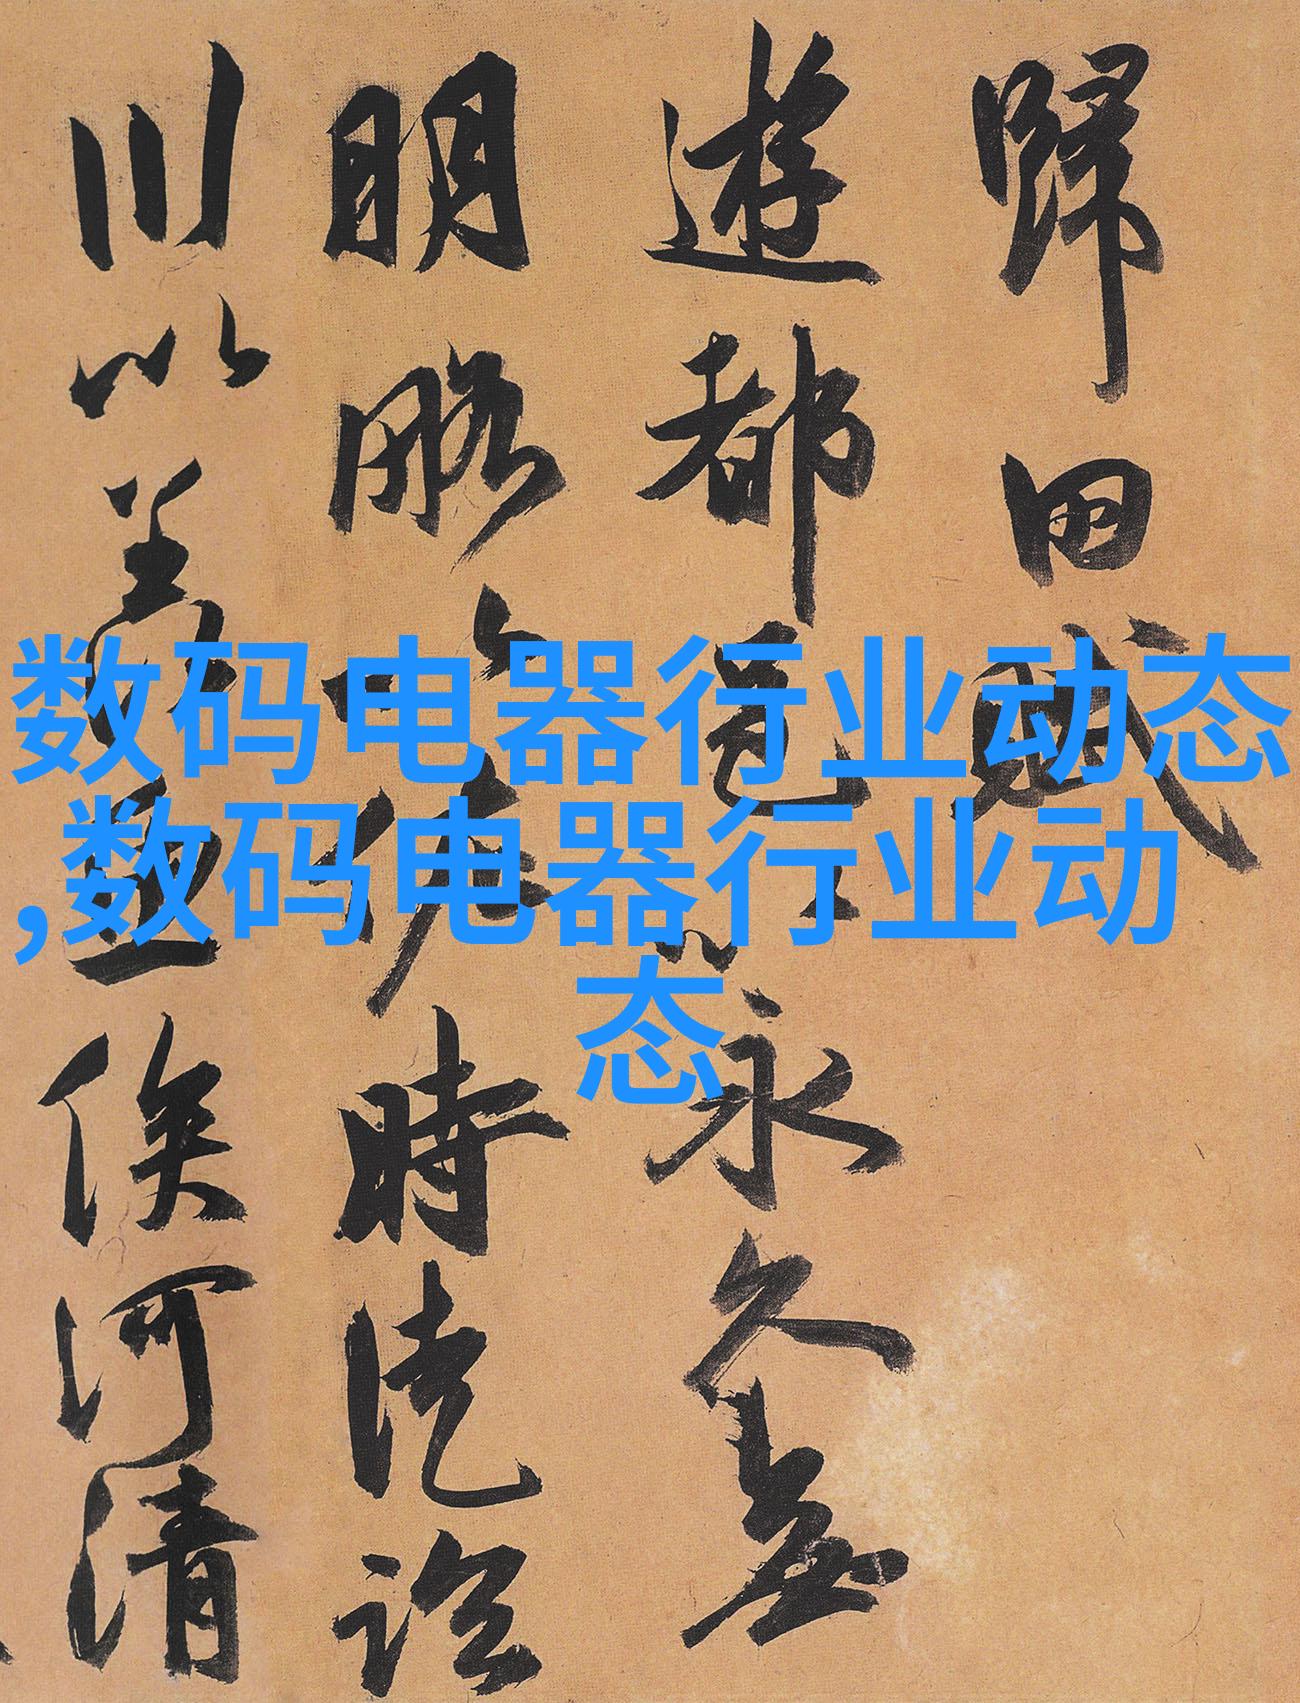 歸田賦
遊都邑以永久無
明略以佐時徒臨
川以羨魚俟河清
数码电器行业动态
,数码电器行业动
态